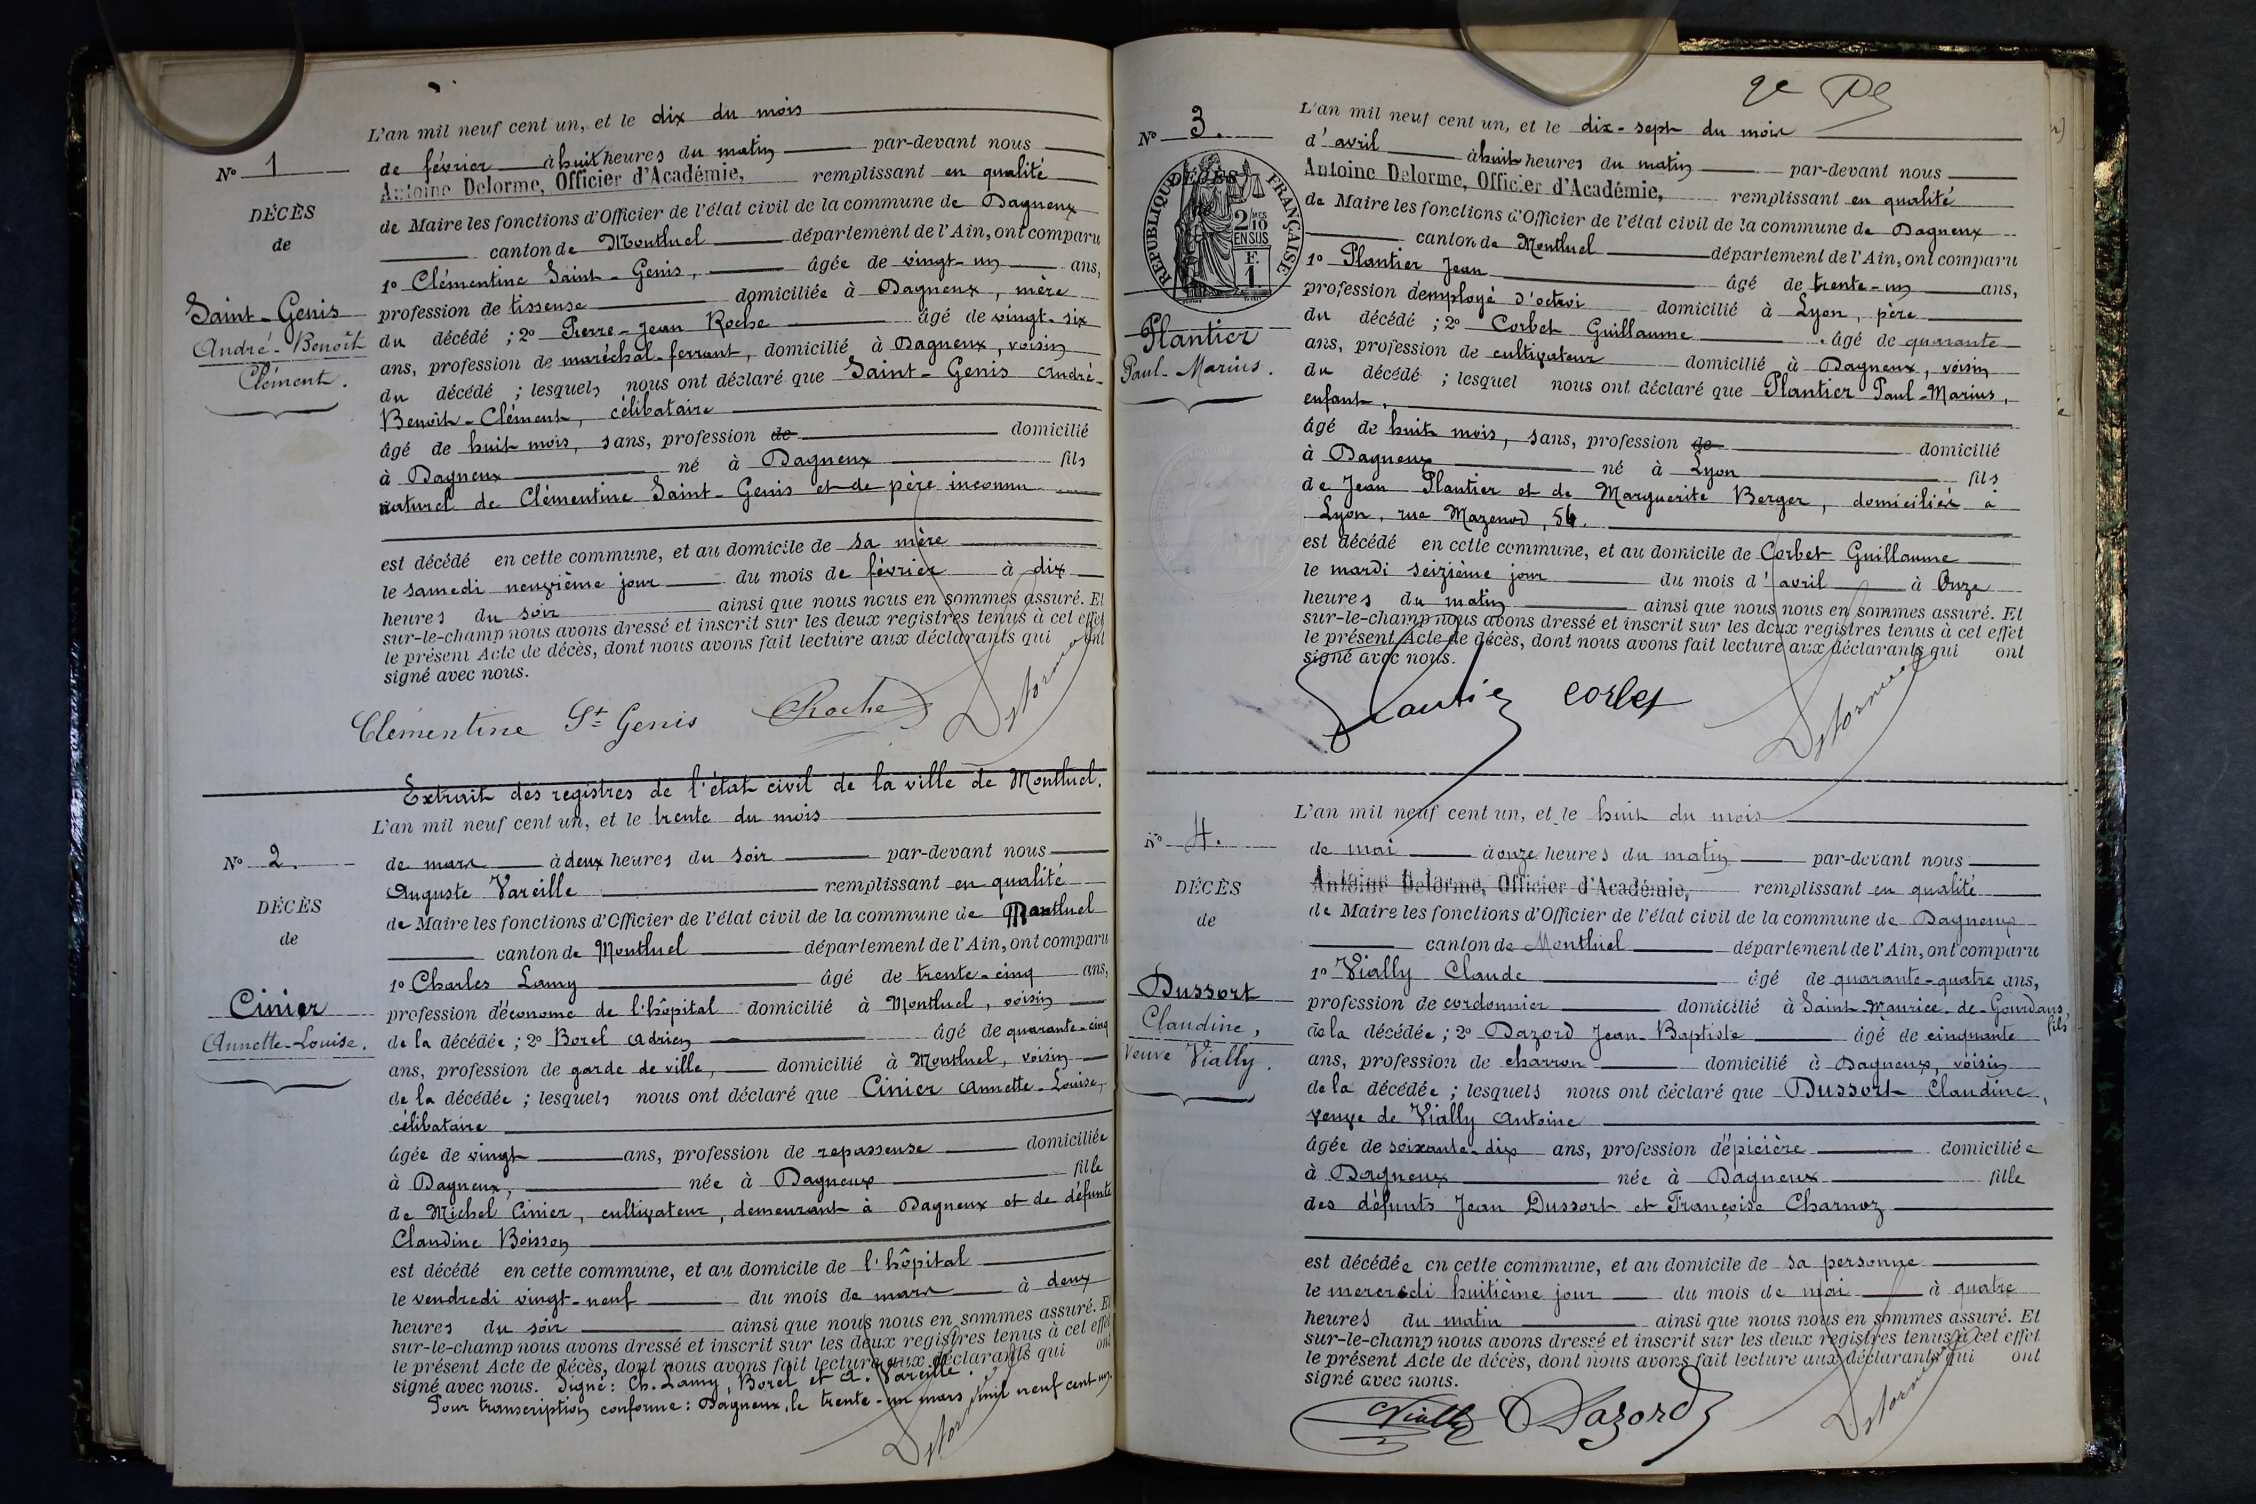 L'an mil neuf cent un, et le dix du mois
de février à huit heures du matin par-devant nous
Antoine Delorme, Officier d'Académie, remplissant en qualité
de Maire les fonctions d'Officier de l'état civil de la commune de Dagneux
canton de Montluel département de l'Ain, ont comparu
1º Clémentine Saint-Genis, âgée de vingt-un ans,
profession de tisseuse domiciliée à Dagneux, mère
du décédé ; 2º Pierre-Jean Roche âgé de vingt-six
ans, profession de maréchal-ferrant, domicilié à Dagneux, voisin
du décédé ; lesquels nous ont déclaré que Saint-Genis André-
Benoît-Clément, célibataire
âgé de huit mois, sans, profession de domicilié
à Dagneux né à Dagneux fils
naturel de Clémentine Saint-Genis et de père inconnu
est décédé en cette commune, et au domicile de sa mère
le samedi neuvième jour du mois de février à dix
heures du soir ainsi que nous nous en sommes assuré. Et
sur-le-champ nous avons dressé et inscrit sur les deux registres tenus à cet effet
le présent Acte de décès, dont nous avons fait lecture aux déclarants qui ont
signé avec nous.
Nº 1
DÉCÈS
de
Saint-Genis
André-Benoît
Clément.
Clémentine St Genis Roche Delorme
Extrait des registres de l'état civil de la ville de Montluel.
L'an mil neuf cent un, et le trente du mois
de mars à deux heures du soir par-devant nous
Auguste Vareille remplissant en qualité
de Maire les fonctions d'Officier de l'état civil de la commune de Montluel
canton de Montluel département de l'Ain, ont comparu
1º Charles Lamy âgé de trente-cinq ans,
profession d'économe de l'hôpital domicilié à Montluel, voisin
de la décédée ; 2º Borel Adrien âgé de quarante-cinq
ans, profession de garde de ville, domicilié à Montluel, voisin
de la décédée ; lesquels nous ont déclaré que Cinier Annette-Louise,
célibataire
âgée de vingt ans, profession de repasseuse domiciliée
à Dagneux, née à Dagneux fille
de Michel Cinier, cultivateur, demeurant à Dagneux et de défunte
Claudine Boisson
est décédé en cette commune, et au domicile de l'hôpital
le vendredi vingt-neuf du mois de mars à deux
heures du soir ainsi que nous nous en sommes assuré. Et
sur-le-champ nous avons dressé et inscrit sur les deux registres tenus à cet effet
le présent Acte de décès, dont nous avons fait lecture aux déclarants qui ont
signé avec nous. Signé : Ch. Lamy, Borel et A. Vareille.
Pour transcription conforme : Dagneux, le trente-un mars mil neuf cent un.
Delorme
Nº 2.
DÉCÈS
de
Cinier
Annette-Louise.
2e
L'an mil neuf cent un, et le dix-sept du mois
d'avril à huit heures du matin par-devant nous
Antoine Delorme, Officier d'Académie, remplissant en qualité
de Maire les fonctions d'Officier de l'état civil de la commune de Dagneux
canton de Montluel département de l'Ain, ont comparu
1º Plantier Jean âgé de trente-un ans,
profession d'employé d'octroi domicilié à Lyon, père
du décédé ; 2º Corbet Guillaume âgé de quarante
ans, profession de cultivateur domicilié à Dagneux, voisin
du décédé ; lesquel nous ont déclaré que Plantier Paul-Marius,
enfant,
âgé de huit mois, sans, profession de domicilié
à Dagneux né à Lyon fils
de Jean Plantier et de Marguerite Berger, domiciliés à
Lyon, rue Mazenod, 54.
est décédé en cette commune, et au domicile de Corbet Guillaume
le mardi seizième jour du mois d'avril à Onze
heures du matin ainsi que nous nous en sommes assuré. Et
sur-le-champ nous avons dressé et inscrit sur les deux registres tenus à cet effet
le présent Acte de décès, dont nous avons fait lecture aux déclarants qui ont
signé avec nous.
Nº 3.
DÉCÈS
RÉPUBLIQUE FRANÇAISE
2/10 MES
EN SUS
F.
1
Plantier
Paul-Marius.
Plantier Corbet Delorme
L'an mil neuf cent un, et le huit du mois
de mai à onze heures du matin par-devant nous
Antoine Delorme, Officier d'Académie, remplissant en qualité
de Maire les fonctions d'Officier de l'état civil de la commune de Dagneux
canton de Montluel département de l'Ain, ont comparu
1º Vially Claude âgé de quarante-quatre ans,
profession de cordonnier domicilié à Saint-Maurice-de-Gourdans,
fils
de la décédée ; 2º Dazord Jean-Baptiste âgé de cinquante
ans, profession de charron domicilié à Dagneux, voisin
de la décédée ; lesquels nous ont déclaré que Dussort Claudine,
veuve de Vially Antoine
âgée de soixante-dix ans, profession d'épicière domiciliée
à Dagneux née à Dagneux fille
des défunts Jean Dussort et Françoise Charnoz
est décédée en cette commune, et au domicile de sa personne
le mercredi huitième jour du mois de mai à quatre
heures du matin ainsi que nous nous en sommes assuré. Et
sur-le-champ nous avons dressé et inscrit sur les deux registres tenus à cet effet
le présent Acte de décès, dont nous avons fait lecture aux déclarants qui ont
signé avec nous.
Nº 4.
DÉCÈS
de
Dussort
Claudine,
Veuve Vially.
Vially Dazord Delorme